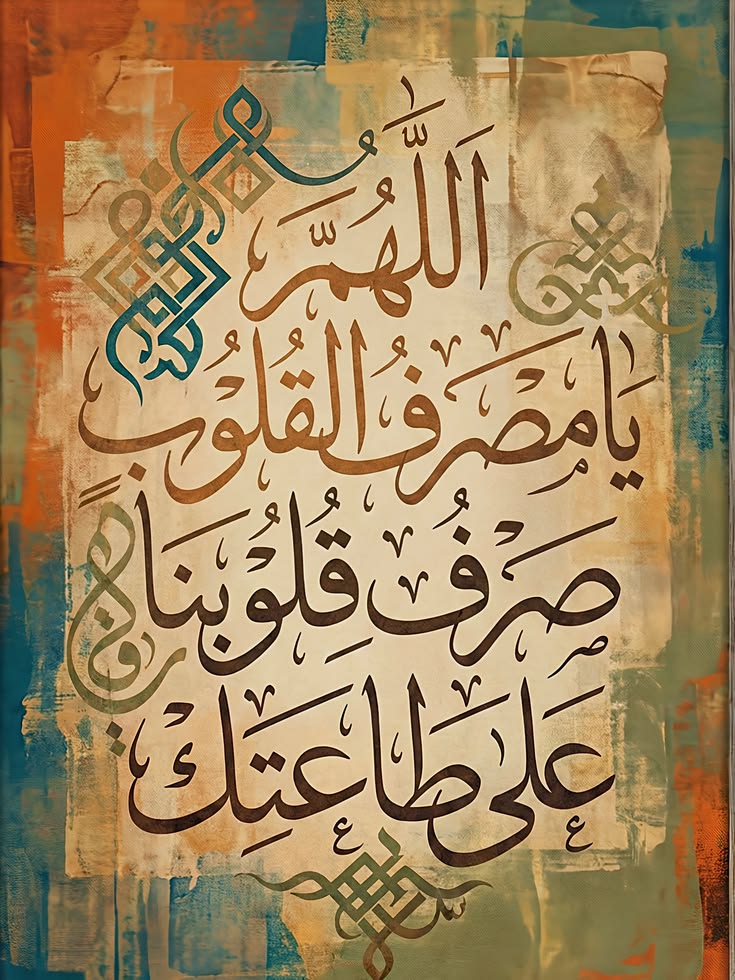 اَللّٰهُمَّ
يَا مُصَرِّفَ الْقُلُوبِ
صَرِّفْ قُلُوبَنَا
عَلَى طَاعَتِكَ